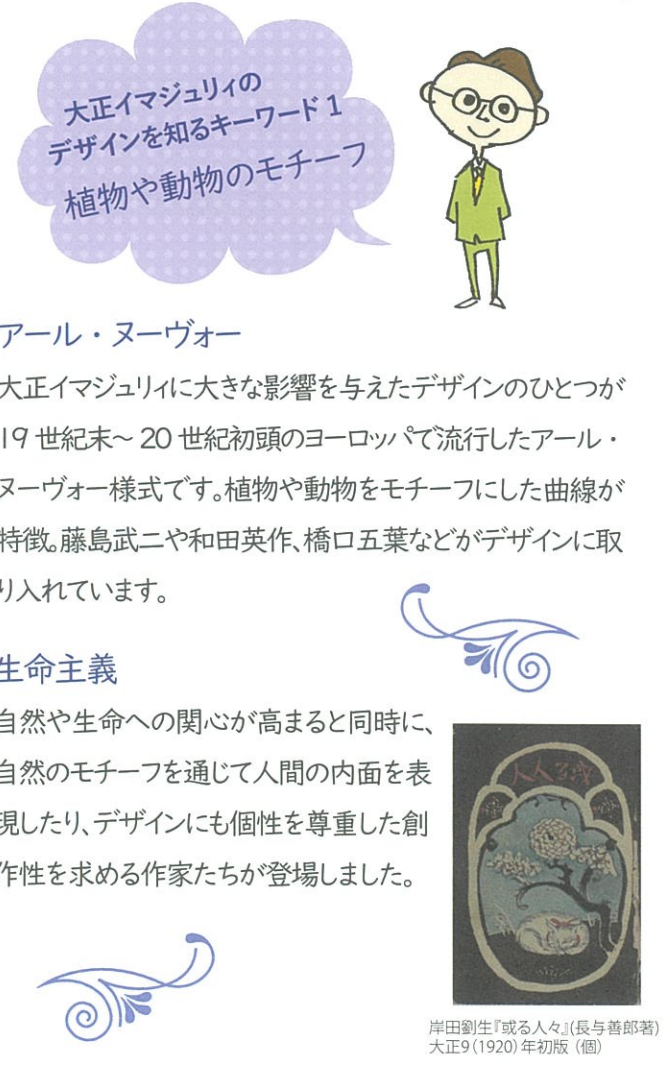 大正イマジュリィの
デザインを知るキーワード 1
植物や動物のモチーフ
アール・ヌーヴォー
大正イマジュリィに大きな影響を与えたデザインのひとつが
19 世紀末～ 20 世紀初頭のヨーロッパで流行したアール・
ヌーヴォー様式です。植物や動物をモチーフにした曲線が
特徴。藤島武二や和田英作、橋口五葉などがデザインに取
り入れています。
生命主義
自然や生命への関心が高まると同時に、
自然のモチーフを通じて人間の内面を表
現したり、デザインにも個性を尊重した創
作性を求める作家たちが登場しました。
岸田劉生『或る人々』(長与善郎著)
大正9(1920)年初版（個）